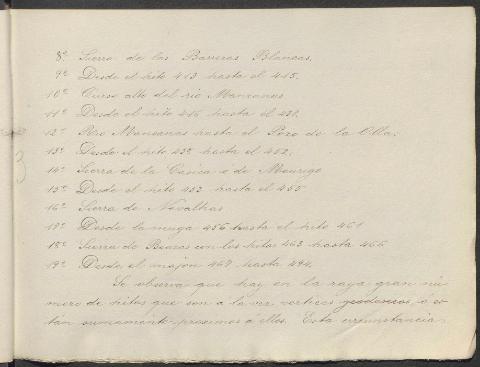 8º Sierra de las Barreras Blancas.
9º Desde el hito 413 hasta el 415.
10º Curso alto del rio Manzanas
11º Desde el hito 416 hasta el 431.
12º Rio Manzanas hasta el Pozo de la Olla.
13º Desde el hito 432 hasta el 452.
14º Sierra de la Cúsica ó de Mourigo
15º Desde el hito 453 hasta el 455
16º Sierra de Novalhas
17º Desde la muga 456 hasta el hito 461
18º Sierra de Bozas con los hitos 463 hasta 466
19º Desde el mojon 467 hasta 494.
Se observa que hay en la raya gran nú
mero de hitos que son a la vez vertices geodesicos, ó es
tán sumamente proximos á ellos. Esta circunstancia